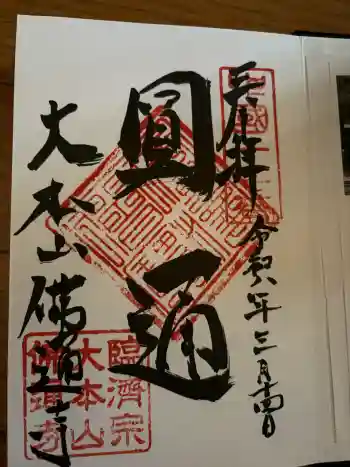 奉拝
令和八年三月十四日
圓通
大本山佛通寺
臨済宗
大本山
佛通寺